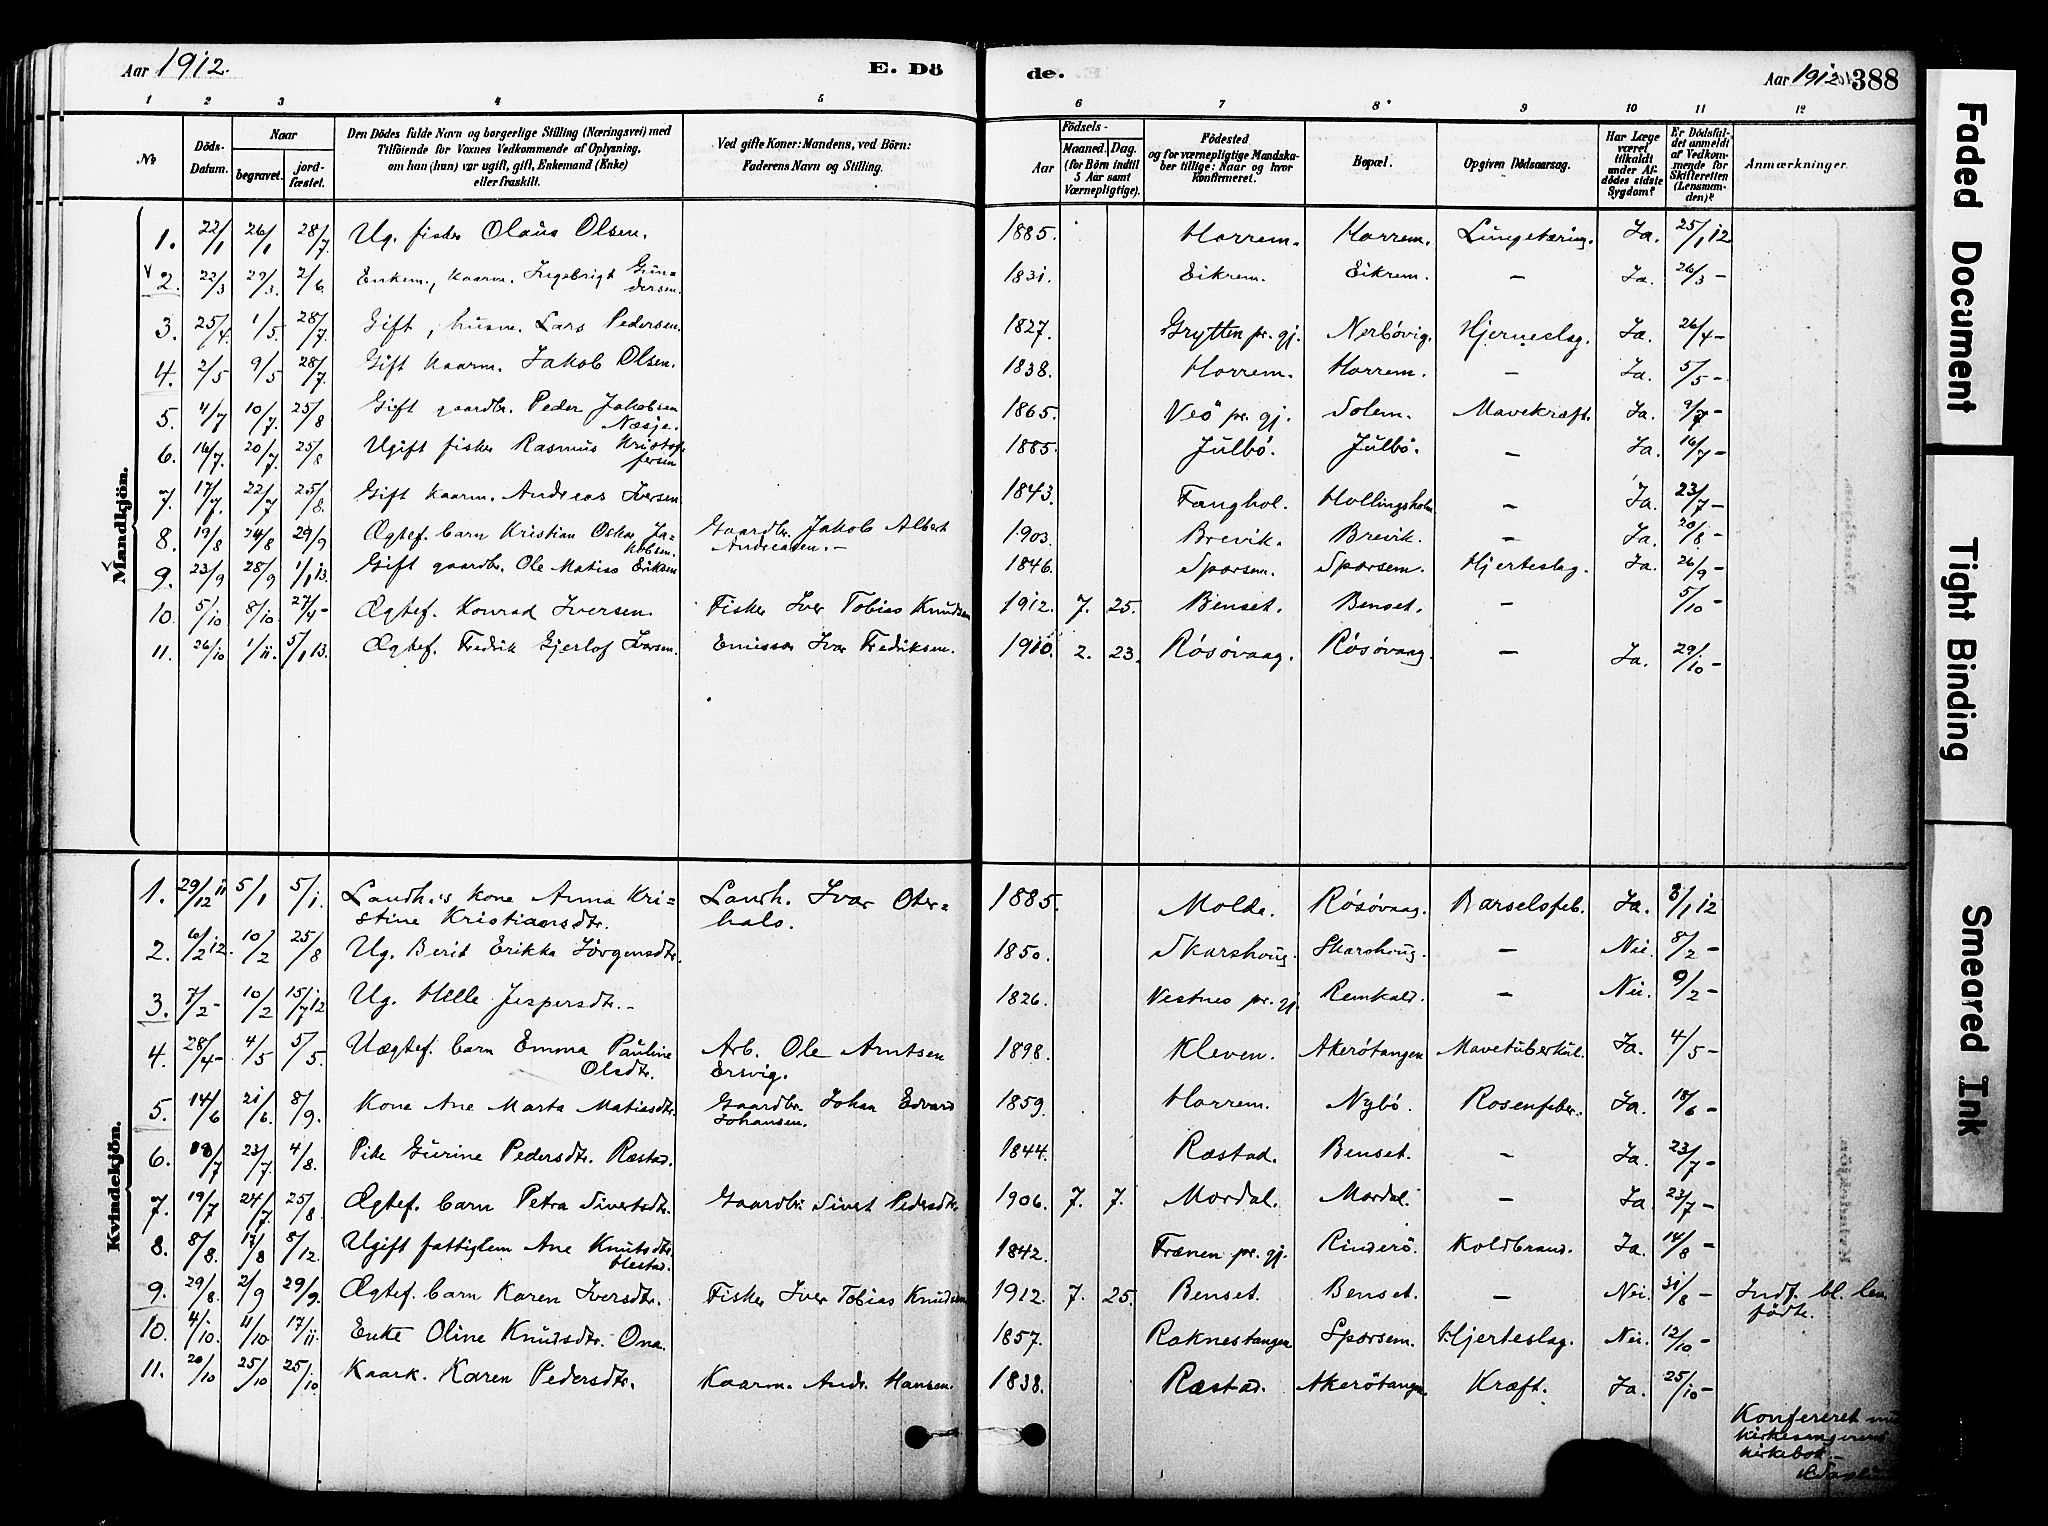 Aar 1912. E. Dö
de. Aar 1912. 388
1 2 3 4 5
6 7 8 9 10 11 12
No Döds-Datum. Naar begravet. jord-fæstet. Den Dödes fulde Navn og borgerlige Stilling (Næringsvei) med Tilföiende for Voxnes Vedkommende af Oplysning, om han (hun) var ugift, gift, Enkemand (Enke) eller fraskilt. Ved gifte Koner: Mandens, ved Börn: Faderens Navn og Stilling.
Födsels- Aar Maaned. Dag. (for Börn indtil 5 Aar samt Værnepligtige). Födested og for værnepligtige Mandskaber tillige: Naar og hvor konfirmeret. Bopæl. Opgiven Dödsaarsag. Har Læge været tilkaldt under Afdödes sidste Sygdom? Er Dödsfaldet anmeldt af Vedkommende for Skifteretten (Lensmanden)? Anmærkninger.
Mandkjön.
1. 22/1 26/1 28/7 Ug. fisker Olaus Olsen. 1885. Horrem. Horrem. Lungetæring. Ja. 25/1 12.
2. 22/3 29/3. 2/6 Enkem., kaarm. Ingebrigt Gundersen. 1831. Eikrem. Eikrem. — Ja. 26/3 -
3. 25/4 1/5. 28/7. Gift, husm. Lars Pedersen. 1827. Grytten pr. gj. Nerbövig. Hjerneslag. Ja. 26/4 -
4. 2/5 9/5 28/7. Gift kaarm. Jakob Olsen. 1838. Horrem. Horrem. — Ja. 5/5 -
5. 4/7 10/7. 25/8 Gift gaardbr. Peder Jakobsen Næsje. 1865. Veö pr. gj. Solem. Mavekræft. Ja. 9/7 -
6. 16/7. 20/7. 25/8 Ugift fisker Rasmus Kristoffersen 1885. Julbö. Julbö. — Ja. 16/7 -
7. 17/7. 22/7 25/8. Gift kaarm. Andreas Iversen 1843. Fanghol. Hollingsholm — Ja. 23/7 -
8. 19/8 24/8 29/9 Ægtef. barn Kristian Oskar Jakobsen. Gaardbr. Jakob Albert Andreasen. — 1903. Brevik. Brevik. — Ja. 20/8 -
9. 23/9 28/9 1/1 13. Gift gaardbr. Ole Matias Eriksen 1846. Sporsem. Sporsem. Hjerteslag. Ja. 26/9 -
10. 5/10 8/10. 27/4 - Ægtef. Konrad Iversen. Fisker Iver Tobias Knudsen 1912. 7. 25. Benset. Benset. — 5/10 -
11. 26/10 1/11. 5/1 13. Ægtef. Fredrik Gjerlof Iversen. Emissær Iver Fredriksen. 1910. 2. 23. Rösövaag. Rösövaag. — Ja. 29/10 -
Kvindekjön.
1. 29/12 11 5/1 5/1. Landh.'s kone Anna Kristine Kristiansdtr. Landh. Ivar Oterhals. 1885. Molde. Rösövaag. Barselsfeb. Ja. 3/1 12
2. 6/2 12. 10/2 25/8 Ug. Berit Erikka Jörgensdtr. 1850. Skarshaug. Skarshaug. — Nei. 8/2 -
3. 7/2 - 10/2 15/7 12 Ug. Helle Jespersdtr. - 1826. Vestnes pr. gj. Remkald. — Nei. 9/2 -
4. 28/4 - 4/5 5/5. Uægtef. barn Emma Pauline Olsdtr. Arb. Ole Arntsen Ersvig. 1898. Kleven. Akerötangen Mavetuberkul. Ja. 4/5 -
5. 14/6 21/6. 8/9. Kone Ane Marta Matiasdtr. Gaardbr. Johan Edvard Johansen. 1859. Horrem. Nybö. Rosenfeber. Ja. 18/6 -
6. 18/7 23/7 4/8. Pike Gurine Pedersdtr. Ræstad. 1844. Ræstad. Benset. - Ja. 23/7 -
7. 19/7 24/7. 25/8. Ægtef. barn Petra Sivertsdtr. Gaardbr. Sivert Pedersdtr. 1906. 7. 7. Mordal. Mordal. — Ja 23/7 -
8. 8/8. 17/8 8/12. Ugift fattiglem Ane Knutsdtr. Hestad. 1842. Frænen pr. gj. Rinderö. Koldbrand. Ja. 14/8 -
9. 29/8. 2/9 29/9. Ægtef. barn Karen Iversdtr. Fisker Iver Tobias Knudsen 1912. 7. 25. Benset. Benset. — Nei. 31/8 - Indf. bl. lev. fødte.
10. 4/10. 11/10 17/11 Enke Oline Knudsdtr. Ona. 1857. Raknestangen Sporsem. Hjerteslag. Nei. 12/10 -
11. 20/10 25/10 25/10 Kaark. Karen Pedersdtr. Kaarm. Andr. Hansen. 1838. Ræstad. Akerötangen. Kræft. Ja. 25/10 -
Konfereret med
kirkesangerens
kirkebok. -
Faded Document
Tight Binding
Smeared Ink